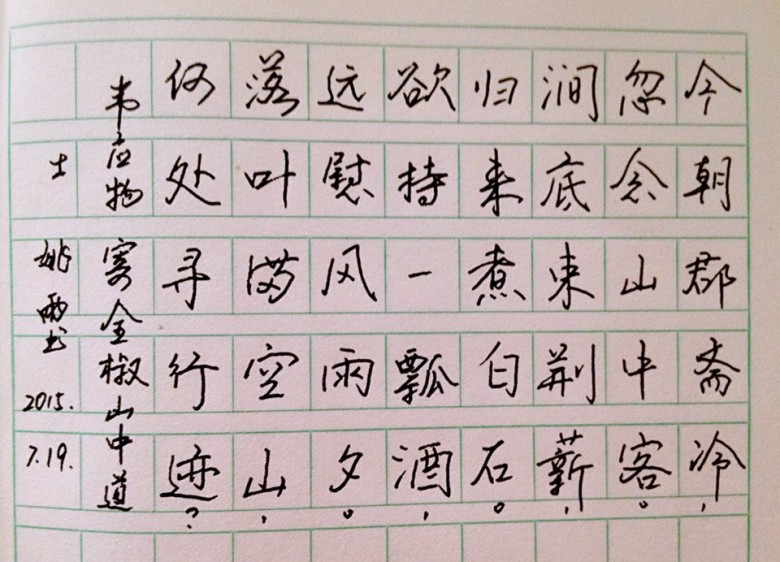 今朝郡斋冷，
忽念山中客。
涧底束荆薪，
归来煮白石。
欲持一瓢酒，
远慰风雨夕。
落叶满空山，
何处寻行迹？
韦应物 寄全椒山中道
士 姚 书 2015. 7.19.